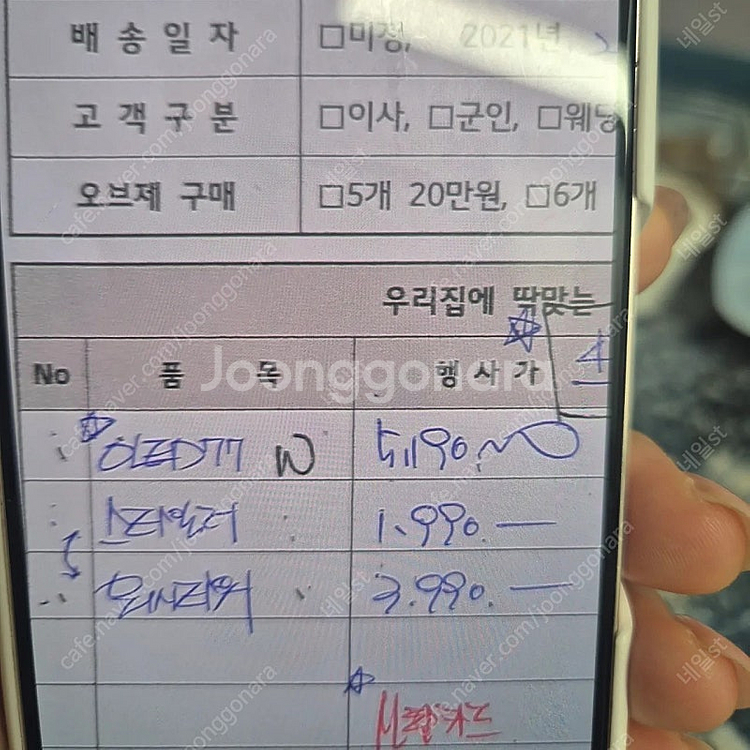 배송일자 □미정, 2021년
고객구분 □이사, □군인, □웨딩
오브제 구매 □5개 20만원, □6개
우리집에 딱맞는
No 품목 행사가 4
OLED77 W 5,190.
스타일러 1.990.—
워시타워 3.990.—
카드
Joonggonara
cafe.naver.com/joonggonara
네일st